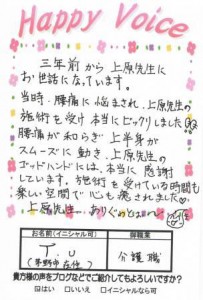 Happy Voice
三年前から上原先生に
お世話になっています。
当時、腰痛に悩まされ、上原先生の
施術を受け本当にビックリしました
腰痛が和らぎ上半身が
スムーズに動き、上原先生の
ゴッドハンドには、本当に感謝
しています。施術を受けている時間も
楽しい空間で心も癒されました
上原先生、ありがとう
お名前(イニシャル可)
御職業
T.U
(茅野市在住)
介護職
貴方様の声をブログなどでご紹介してもよろしいですか?
☑はい □いいえ □イニシャルなら可